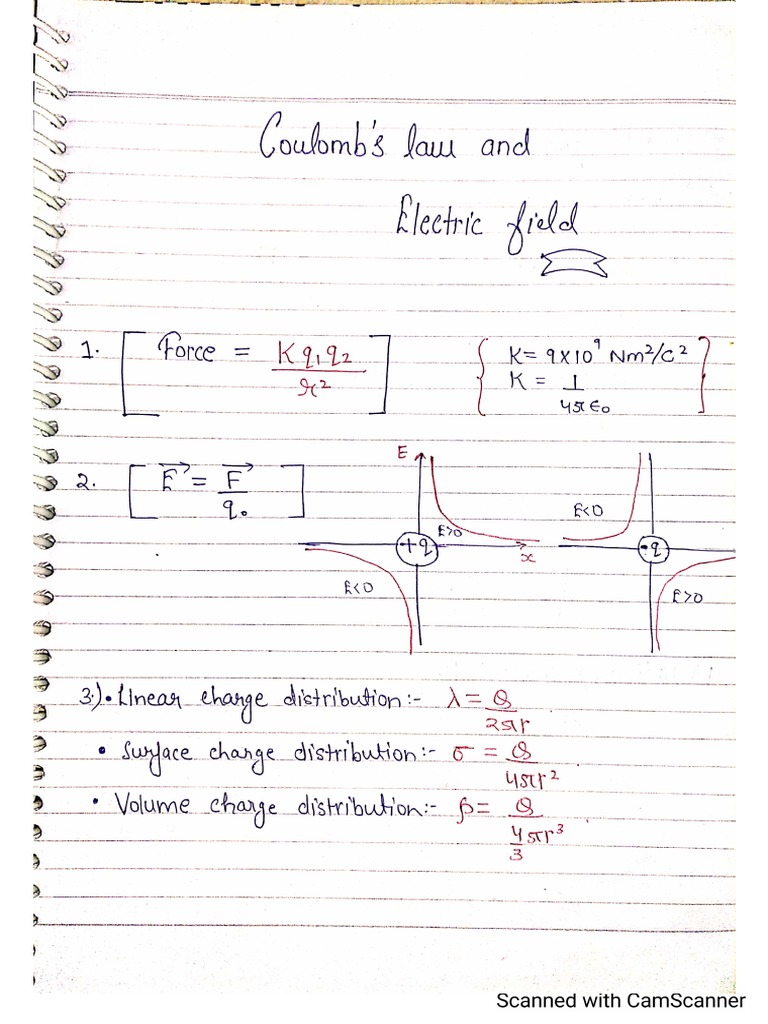 Coulomb's law and
Electric field
1. [ Force = K q₁ q₂ / r² ] { K = 9×10⁹ Nm²/C²
K = 1 / 4πε₀ }
2. [ E⃗ = F⃗ / q₀ ]
E
E>0
+q
x
E<0
E<0
-q
E>0
3.) • Linear charge distribution :- λ = Q / 2πr
• Surface charge distribution :- σ = Q / 4πr²
• Volume charge distribution :- ρ = Q / 4/3 πr³
Scanned with CamScanner